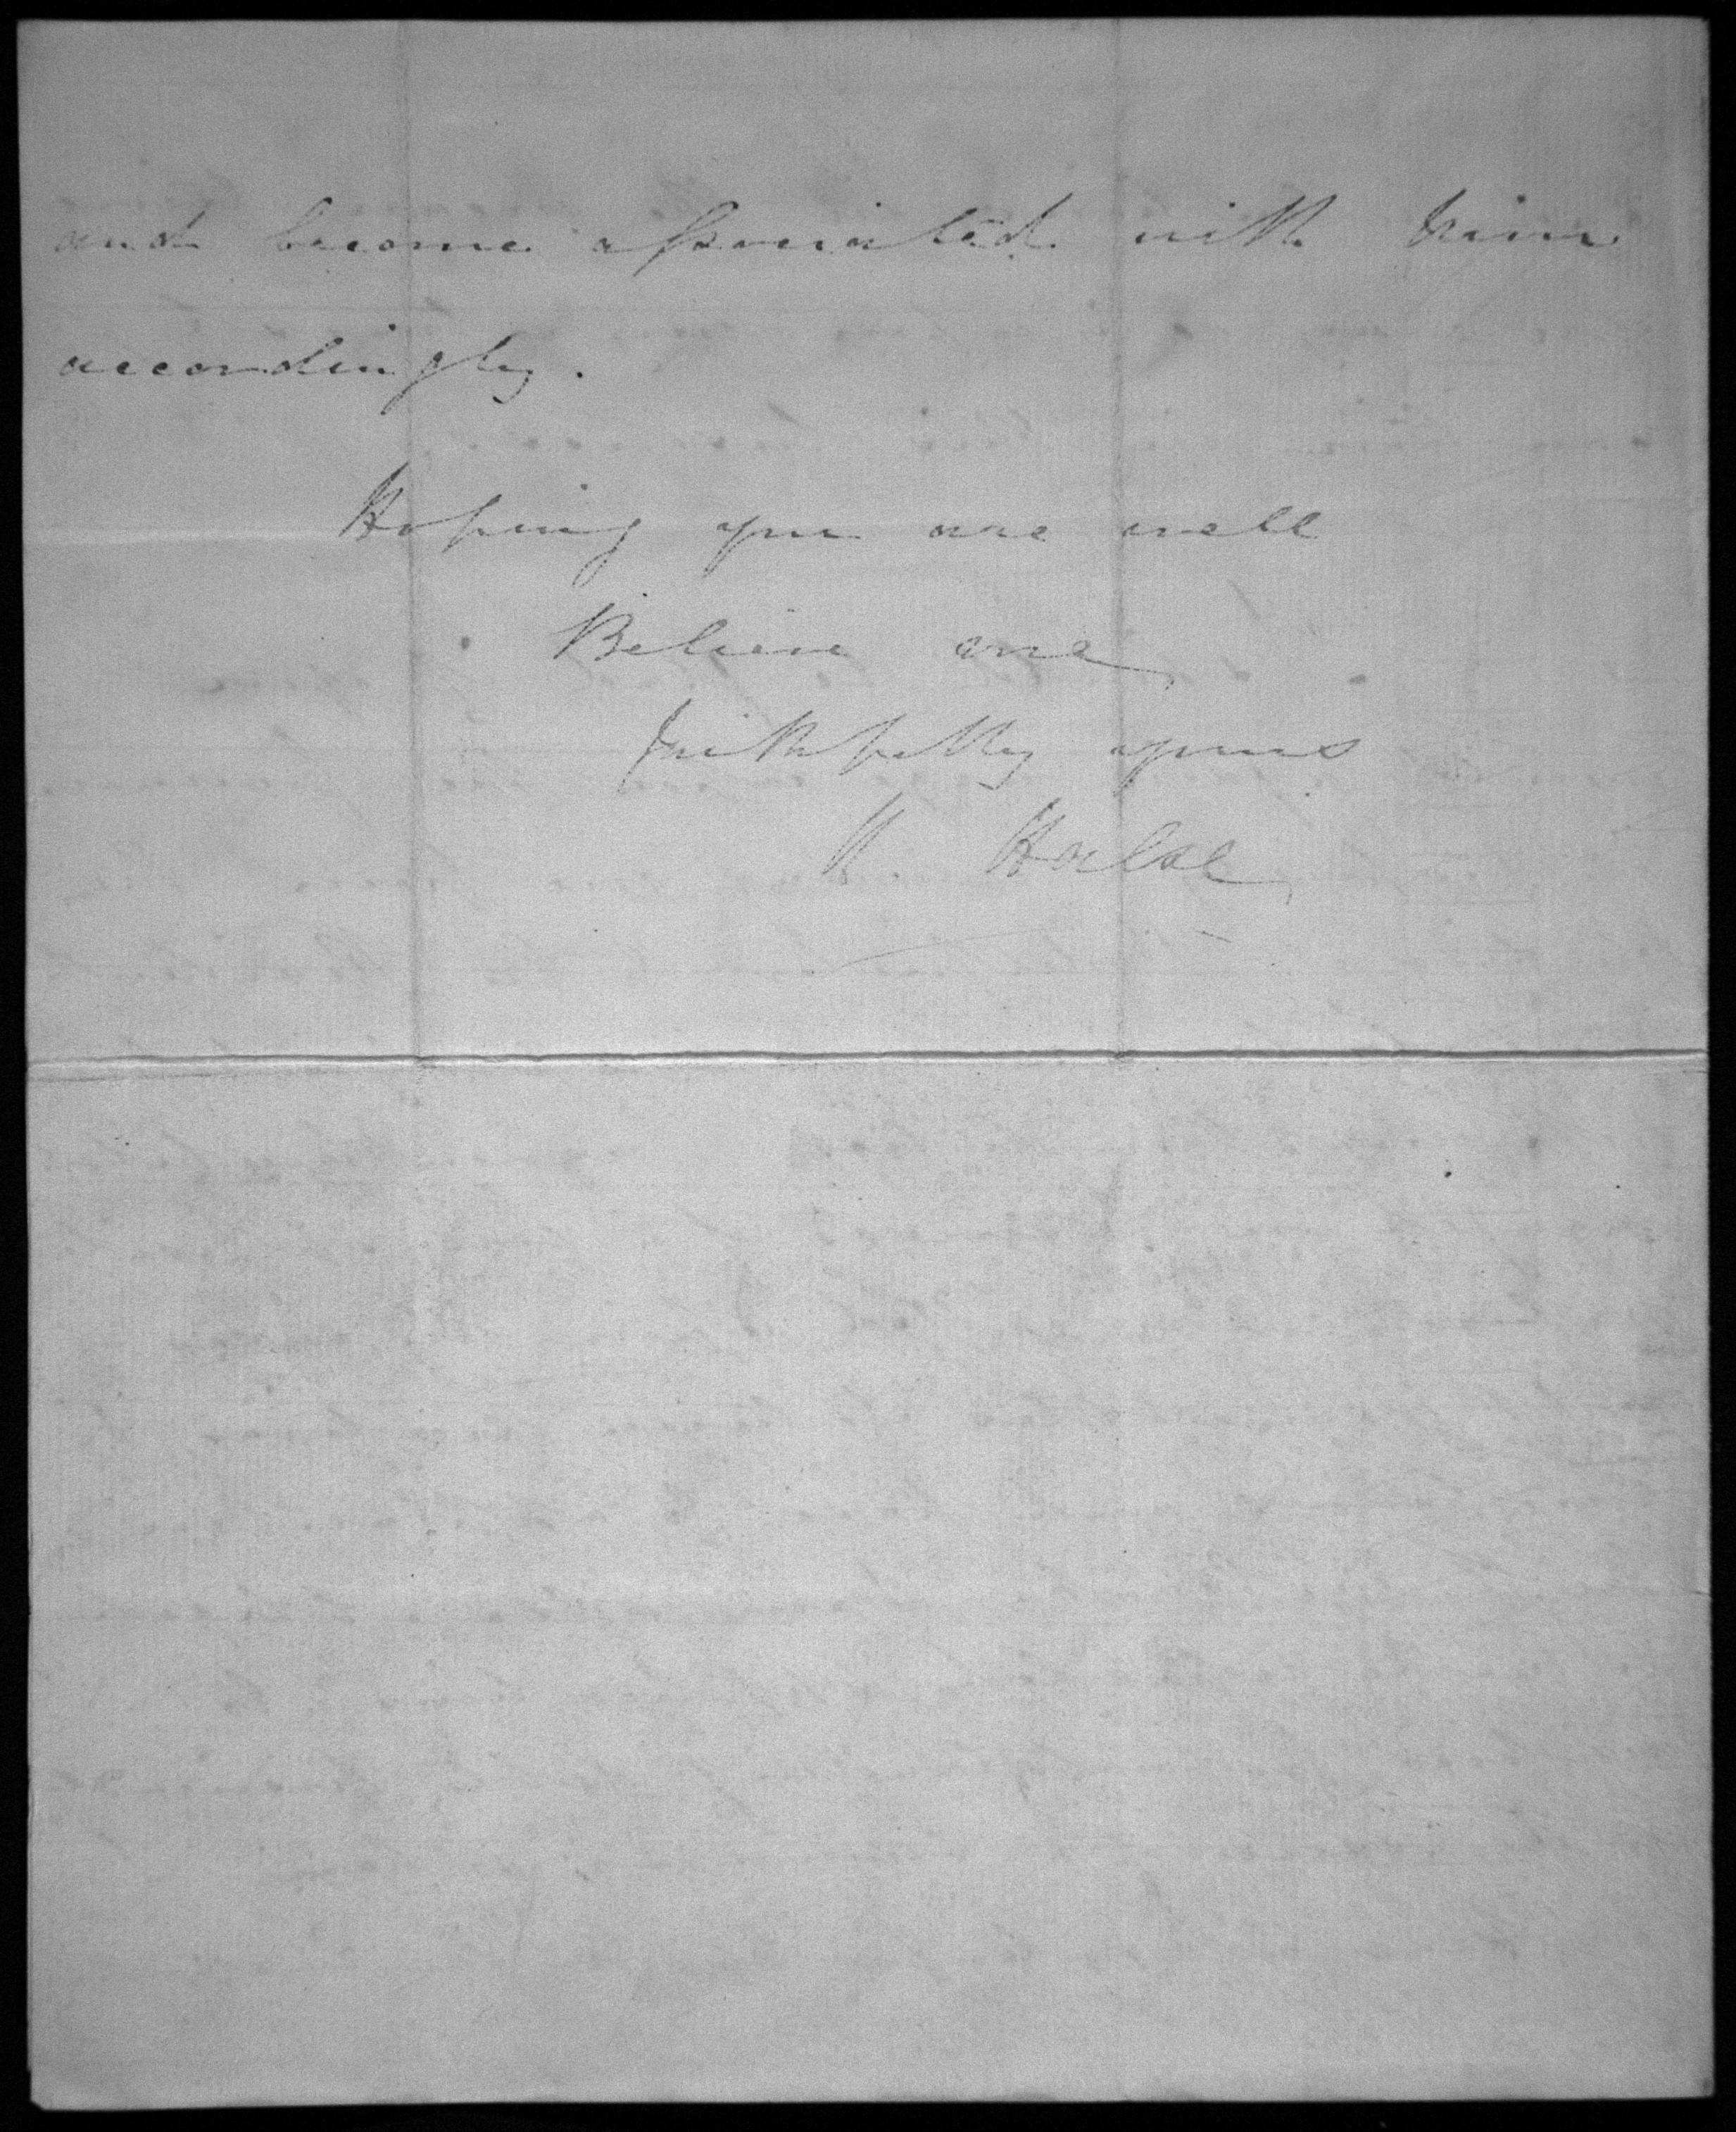 and become associated with him
accordingly.
Hoping you are well
Believe me
Faithfully yours
H. Halse